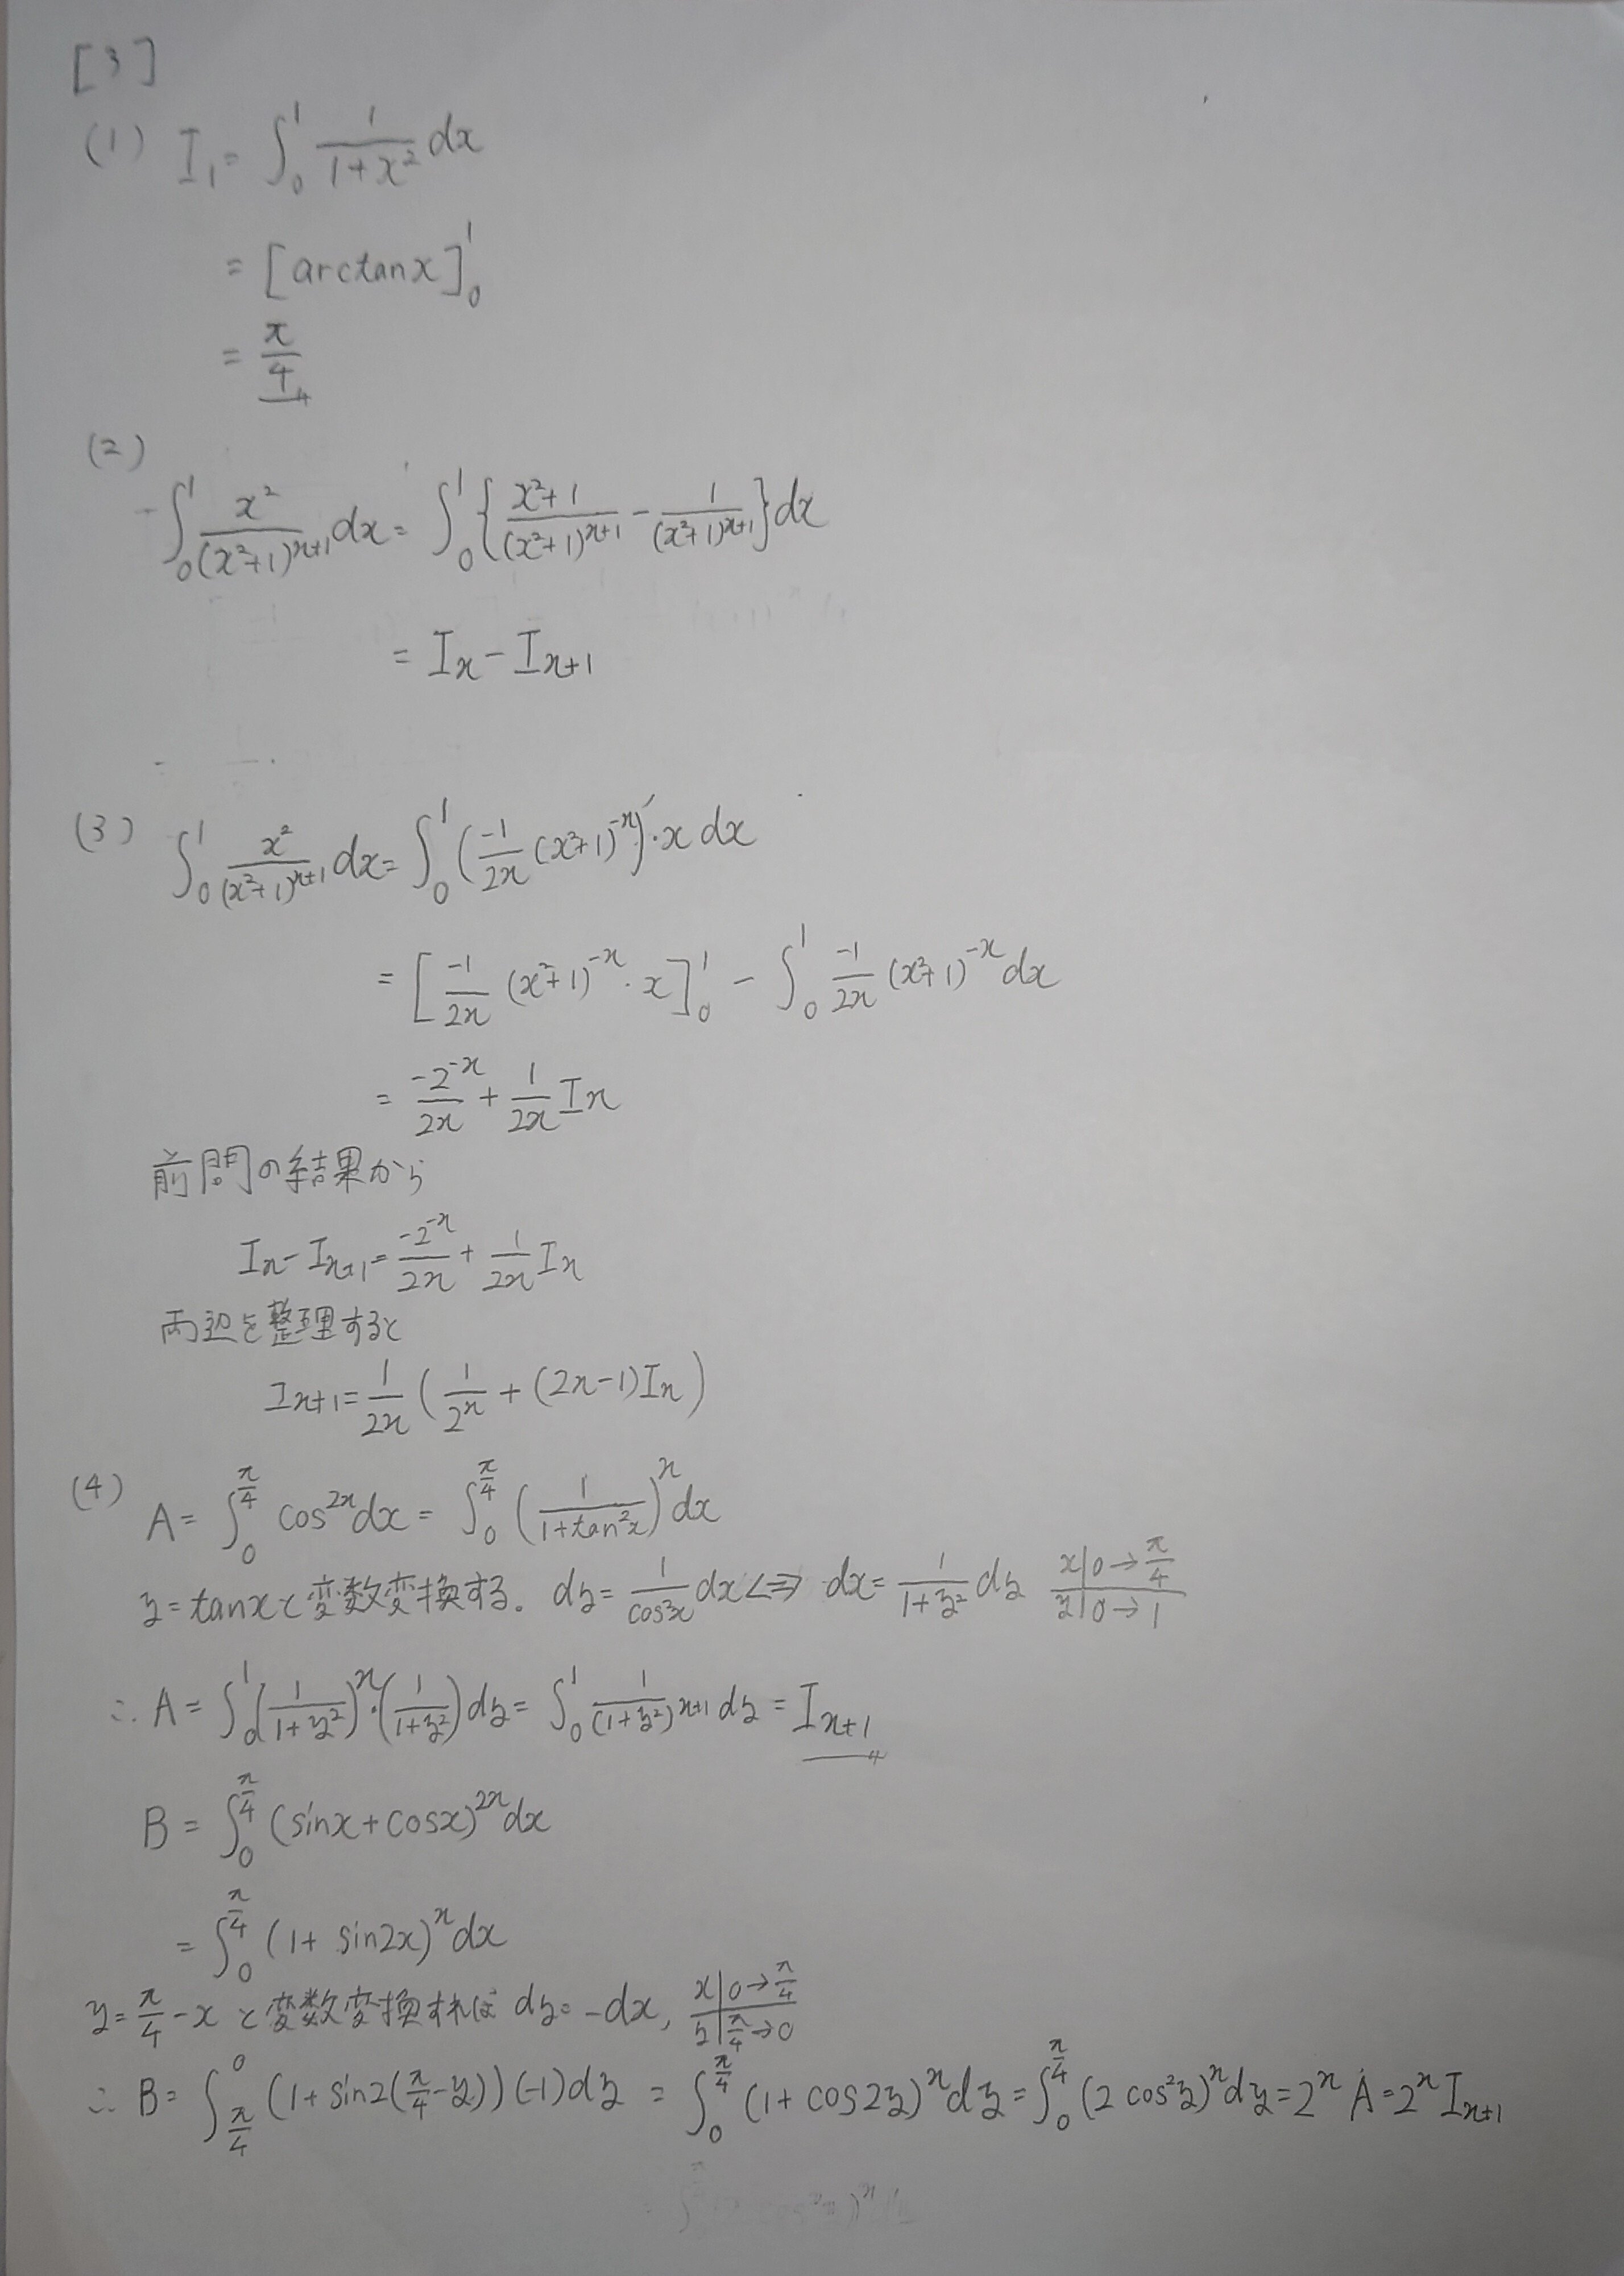 [3]
(1) I₁ = ∫₀¹ 1/(1+x²) dx
= [arctanx]₀¹
= π/4
(2)
∫₀¹ x²/(x²+1)ⁿ⁺¹ dx = ∫₀¹ {(x²+1)/(x²+1)ⁿ⁺¹ - 1/(x²+1)ⁿ⁺¹} dx
= Iₙ - Iₙ₊₁
(3) ∫₀¹ x²/(x²+1)ⁿ⁺¹ dx = ∫₀¹ (-1/2n (x²+1)⁻ⁿ)′・x dx
= [-1/2n (x²+1)⁻ⁿ・x]₀¹ - ∫₀¹ -1/2n (x²+1)⁻ⁿ dx
= -2⁻ⁿ/2n + 1/2n Iₙ
前問の結果から
Iₙ - Iₙ₊₁ = -2⁻ⁿ/2n + 1/2n Iₙ
両辺を整理すると
Iₙ₊₁ = 1/2n (1/2ⁿ + (2n-1)Iₙ)
(4) A = ∫₀^(π/4) cos²ⁿ dx = ∫₀^(π/4) (1/(1+tan²x))ⁿ dx
y = tanxと変数変換する。 dy = 1/cos²x dx ⇔ dx = 1/(1+y²) dy x|0→π/4 y|0→1
∴ A = ∫₀¹ (1/(1+y²))ⁿ・(1/(1+y²)) dy = ∫₀¹ 1/(1+y²)ⁿ⁺¹ dy = Iₙ₊₁
B = ∫₀^(π/4) (sinx+cosx)²ⁿ dx
= ∫₀^(π/4) (1+ sin2x)ⁿ dx
y = π/4 - x と変数変換すれば dy = -dx, x|0→π/4 y|π/4→0
∴ B = ∫_(π/4)^0 (1+sin2(π/4-y)) (-1)dy = ∫₀^(π/4) (1+cos2y)ⁿ dy = ∫₀^(π/4) (2cos²y)ⁿ dy = 2ⁿ A = 2ⁿ Iₙ₊₁